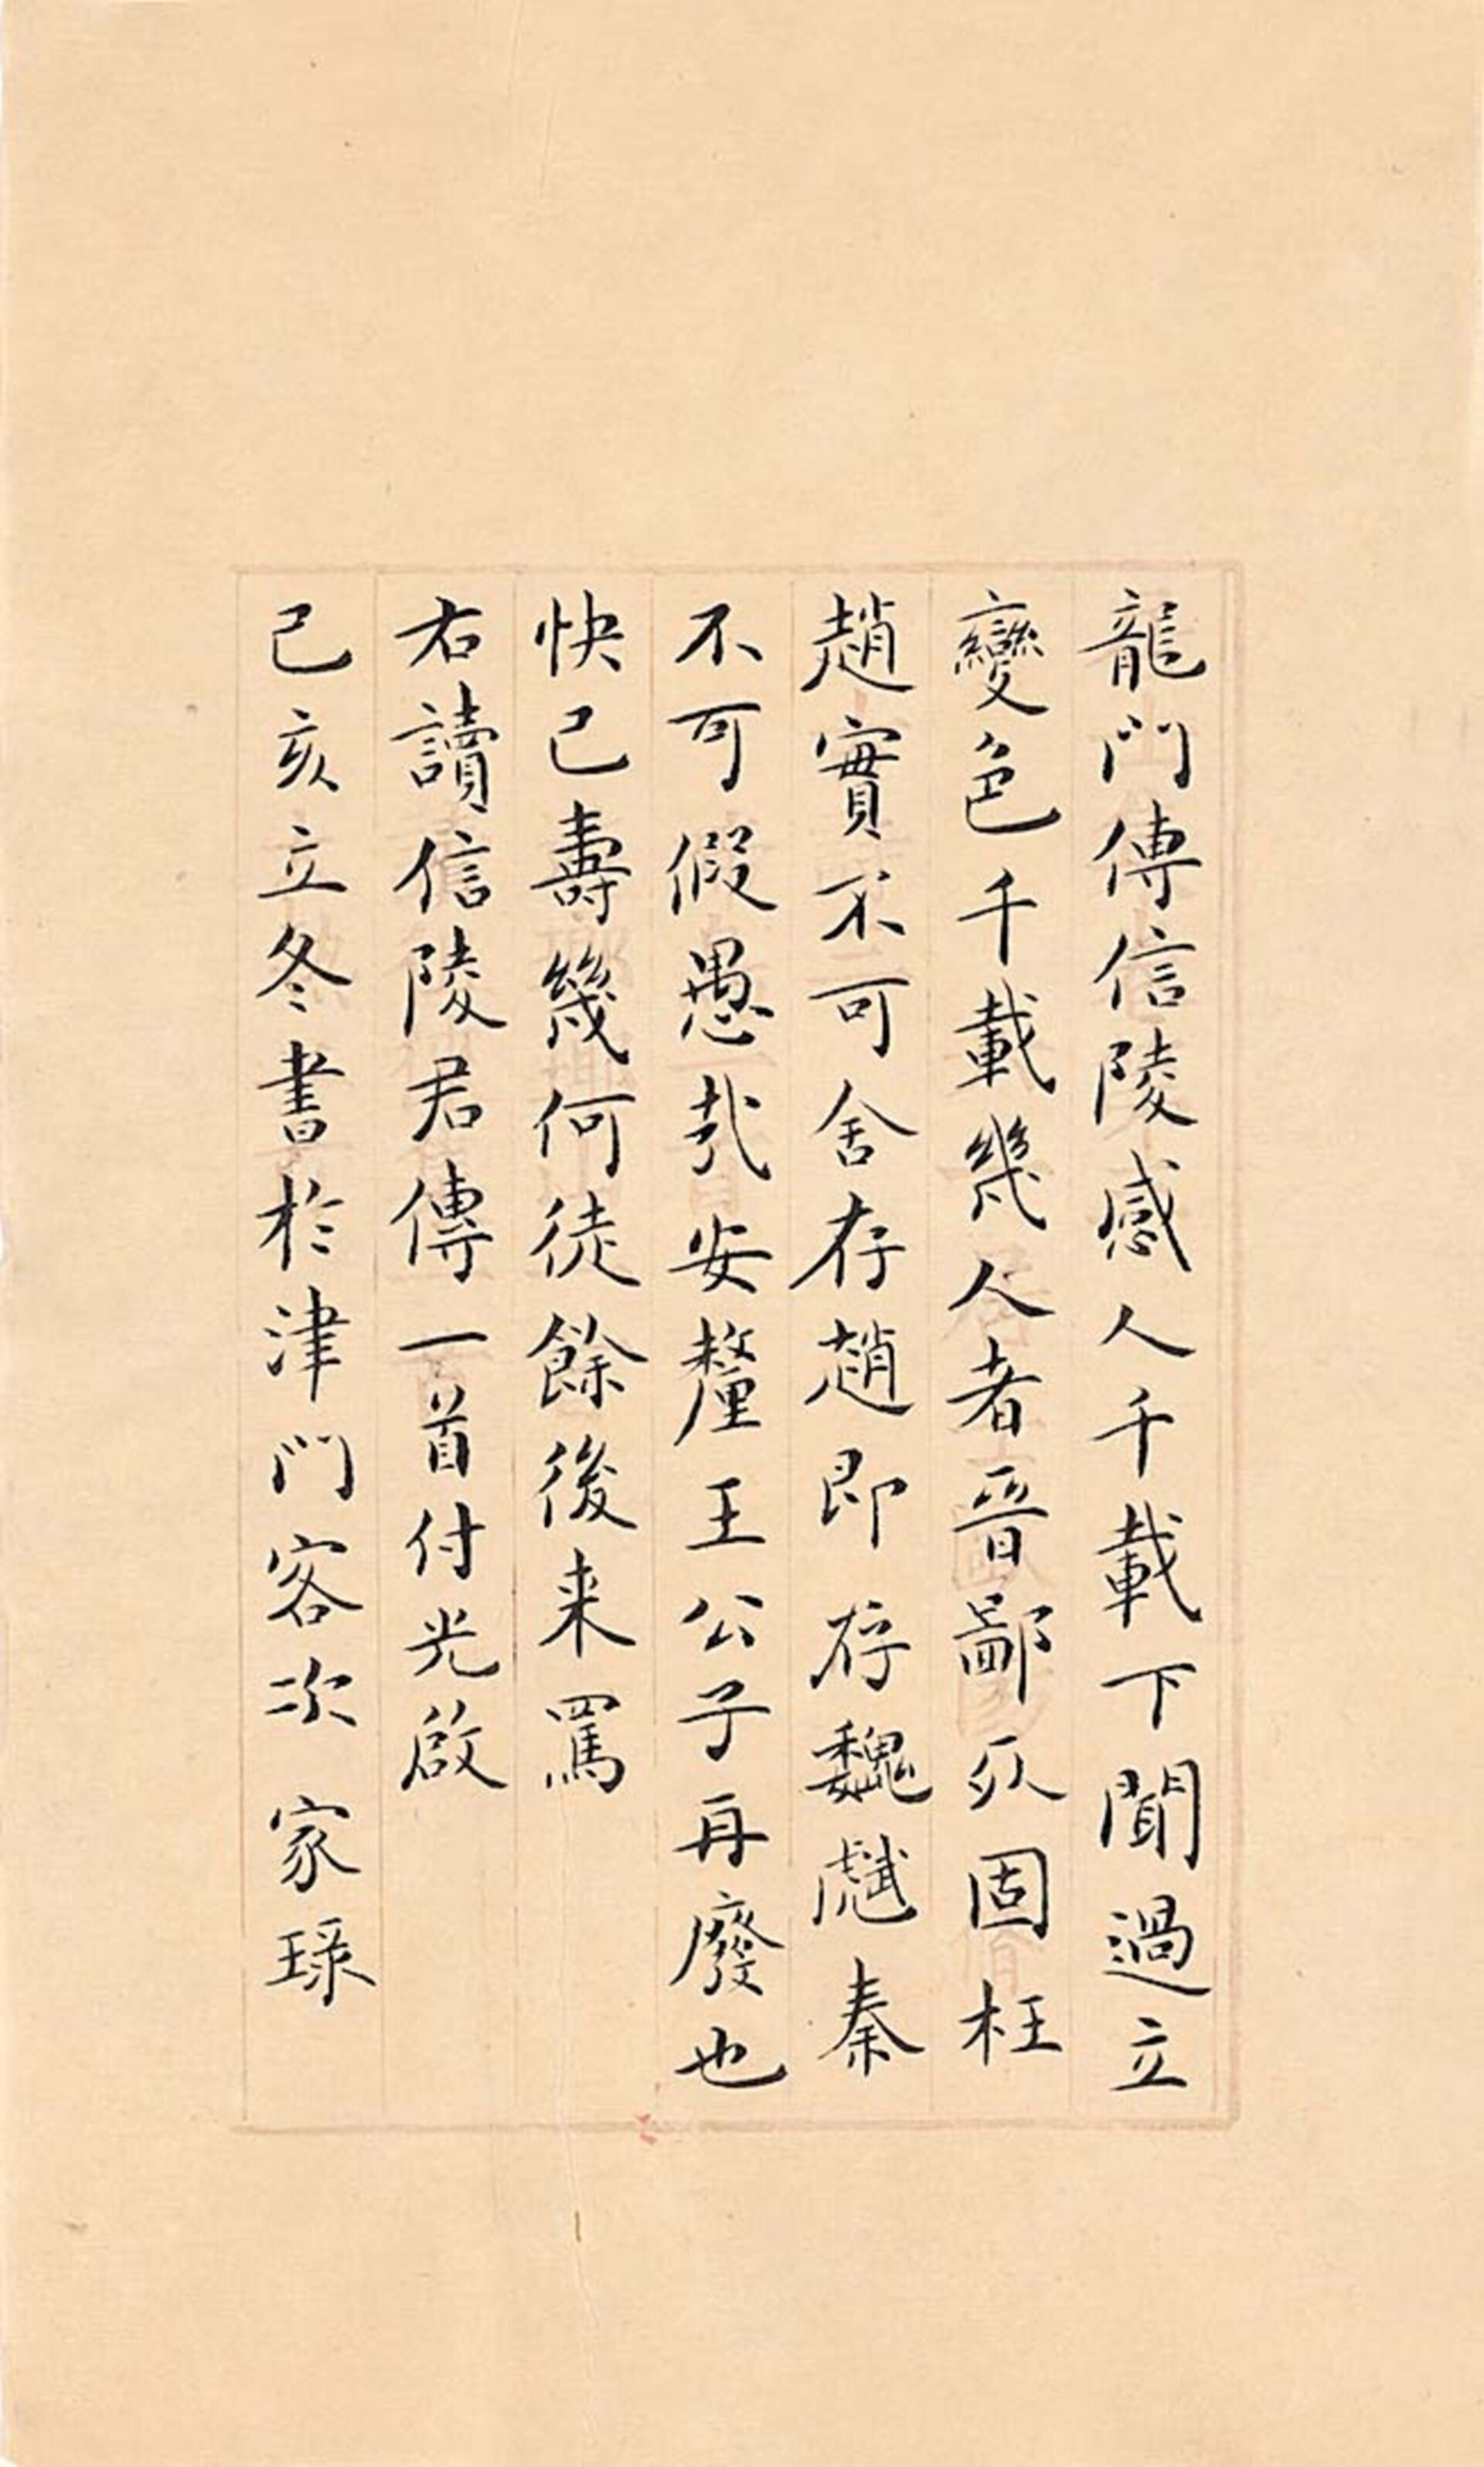 龍門傳信陵感人千載下聞過立
變色千載幾人者晉鄙死固枉
趙實不可舍存趙即存魏虣秦
不可假愚哉安釐王公子再廢也
快己壽幾何徒餘後来罵
右讀信陵君傳一首付光啟
己亥立冬書於津門客次 家琭